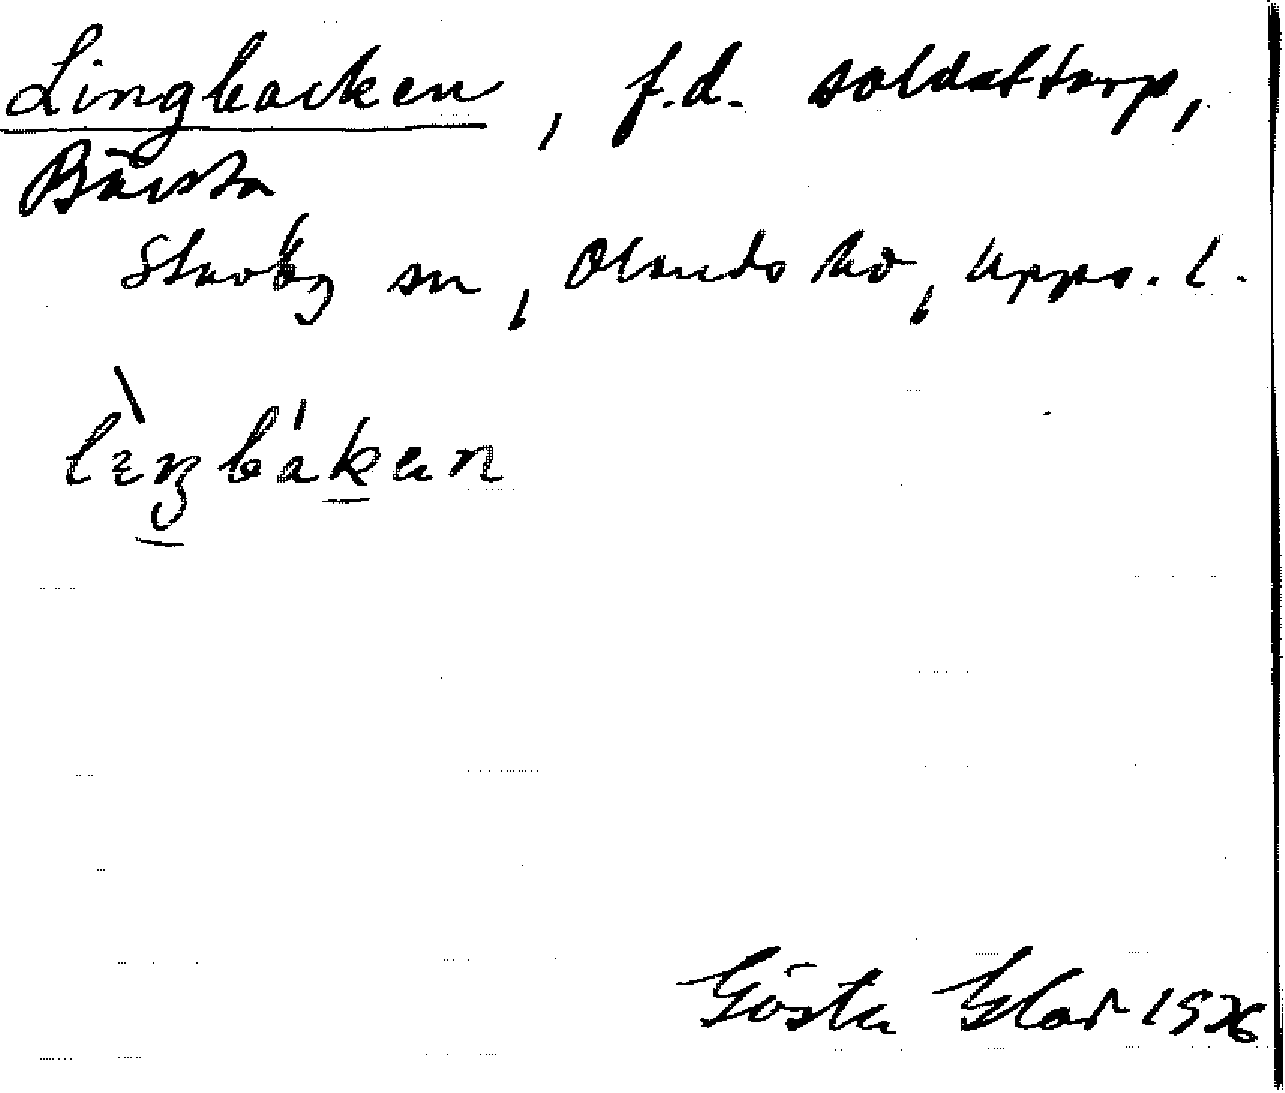 Lingbacken, f.d. soldattorp,
Bärsta
Stavby sn, Olands hd, Upps. l.
lèŋbákan
Gösta 1926